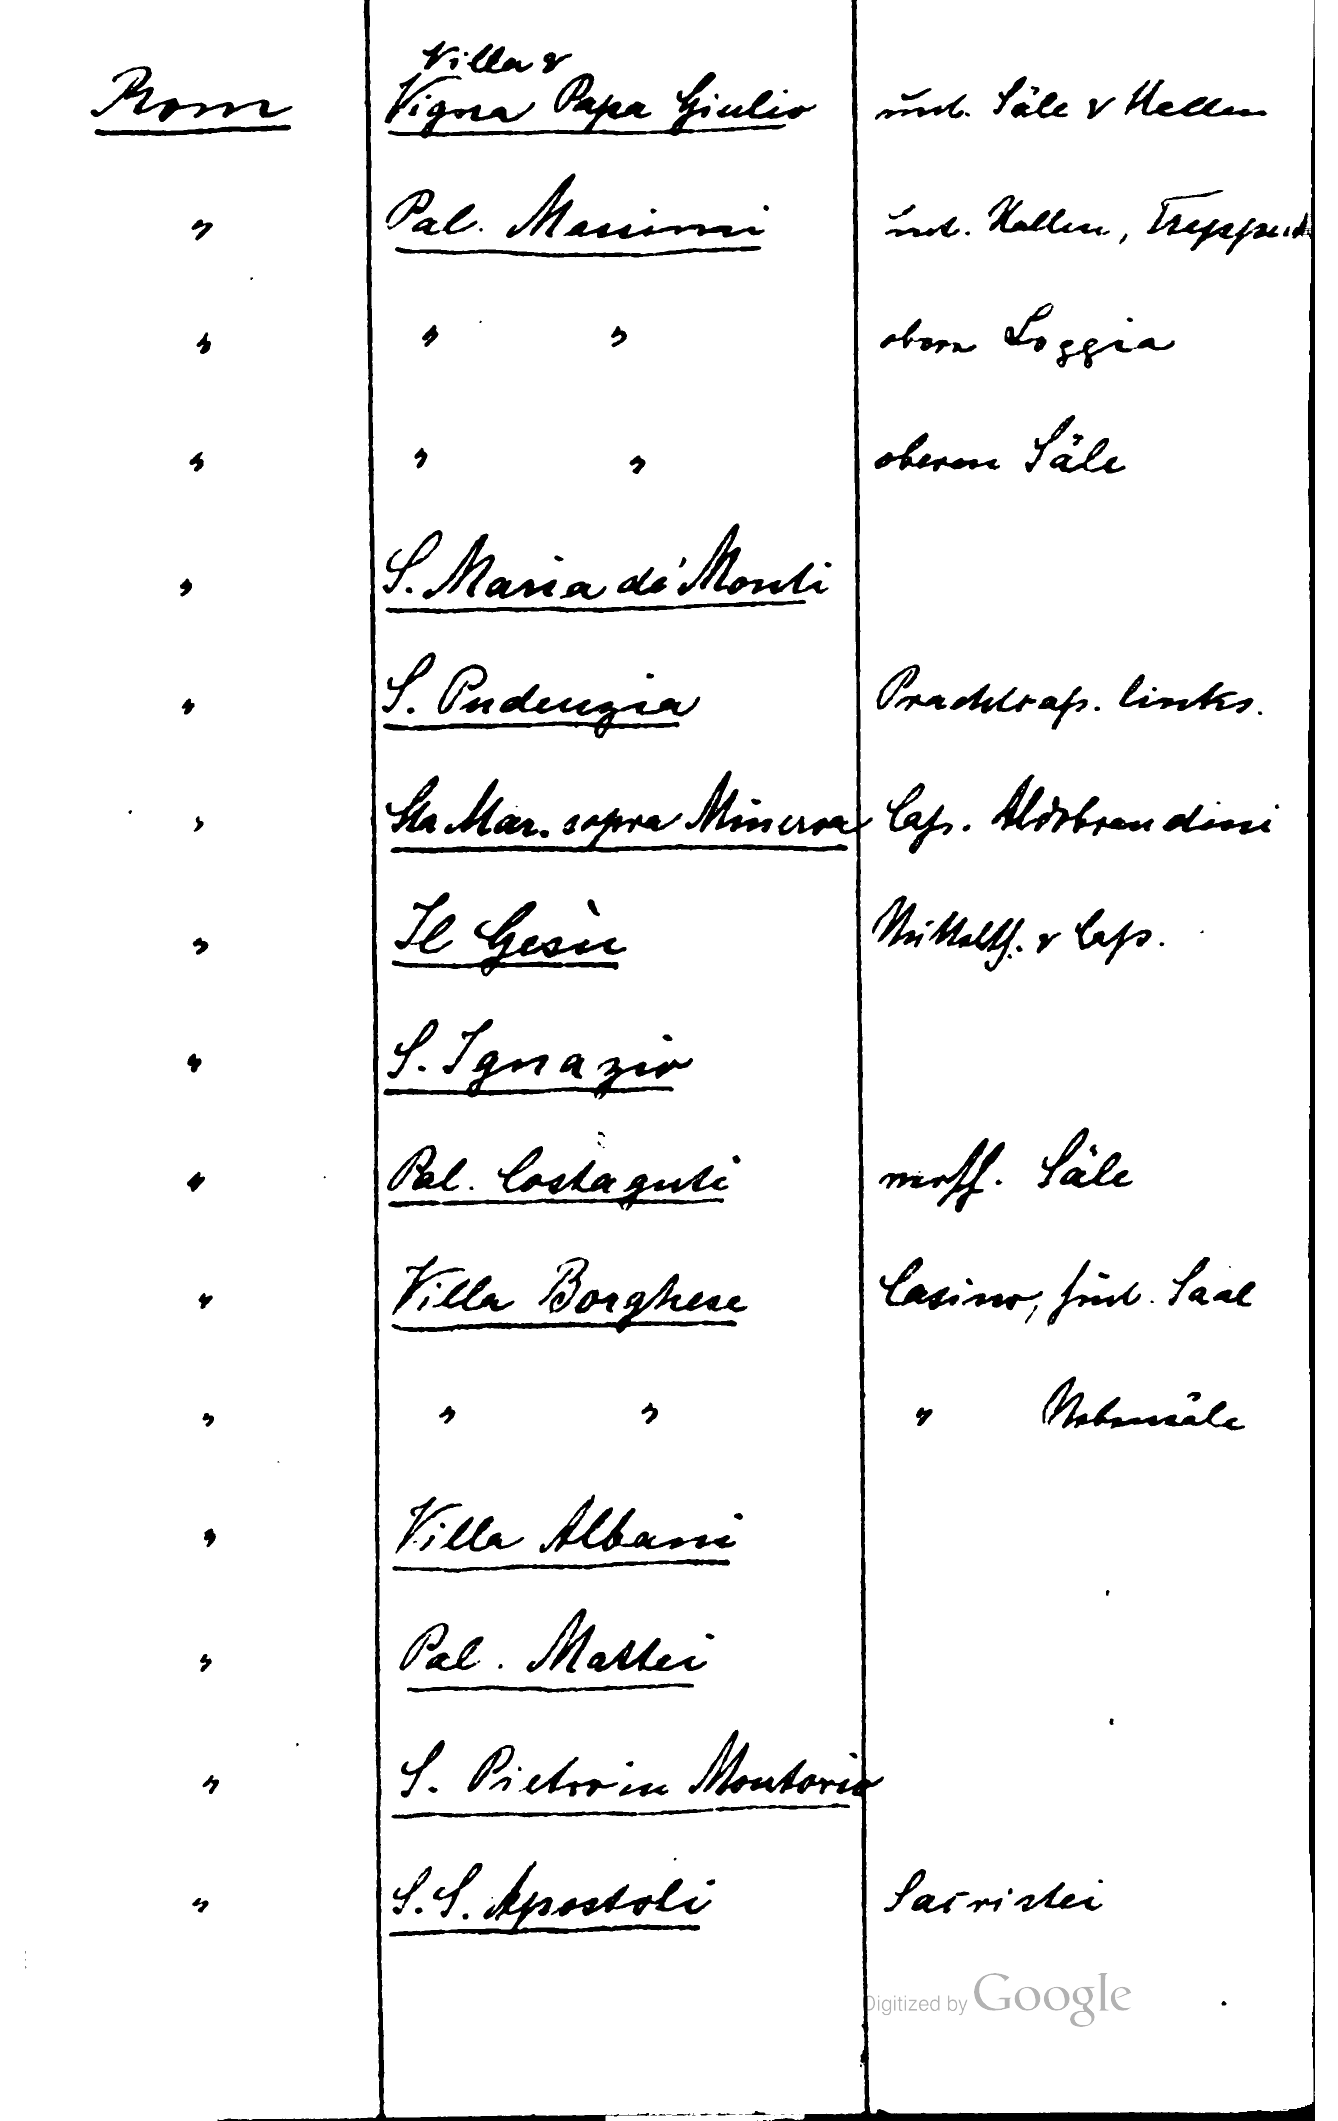 Villa &
Rom Vigna Papa Giulio unt. Säle & Hallen
" Pal. Massimi unt. Hallen, Treppen
" " " obere Loggia
" " " oberen Säle
" S. Maria de' Monti
" S. Pudenzia Prachtcap. links.
" Sta Mar. sopra Minerva Cap. Aldobrandini
" Il Gesù Mittelsch. & Cap.
" S. Ignazio
" Pal. Costaguti versch. Säle
" Villa Borghese Casino, süd. Saal
" " " " Nebensäle
" Villa Albani
" Pal. Mattei
" S. Pietro in Montorio
" S.S. Apostoli Sacristei
Digitized by Google